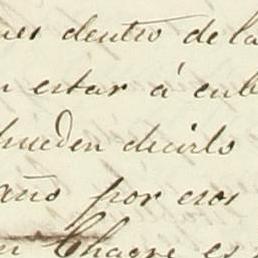 dentro de la
estar á cub
pueden decirlo
año por esos
Chagre es